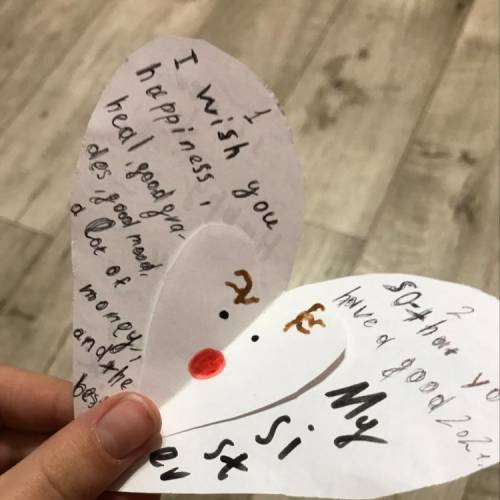 1
I wish you
happiness,
heal, good gra-
des, good mood,
a lot of
money,
and the
bes
2
so that yo
have a good 202
My
si
st
er